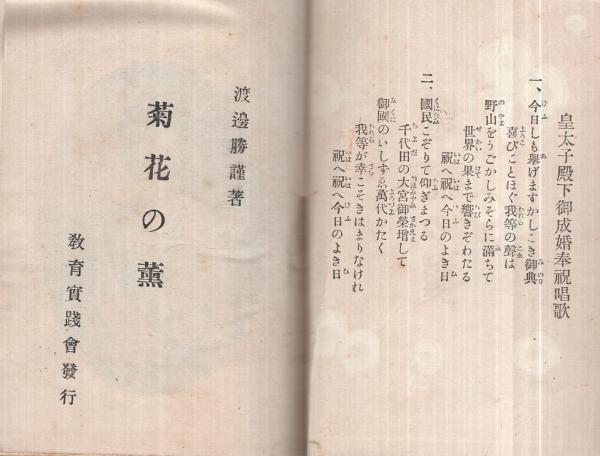 皇太子殿下御成婚奉祝唱歌
一、今日しも擧げますかしこき御典
喜びことほぐ我等の聲は
野山をうごかしみそらに滿ちて
世界の果まで響きぞわたる
祝へ祝へ今日のよき日
二、國民こぞりて仰ぎまつる
千代田の大宮御榮增して
御國のいしずゑ萬代かたく
我等が幸こそきはまりなけれ
祝へ祝へ今日のよき日
渡邊勝謹著
菊花の薫
敎育實踐會發行